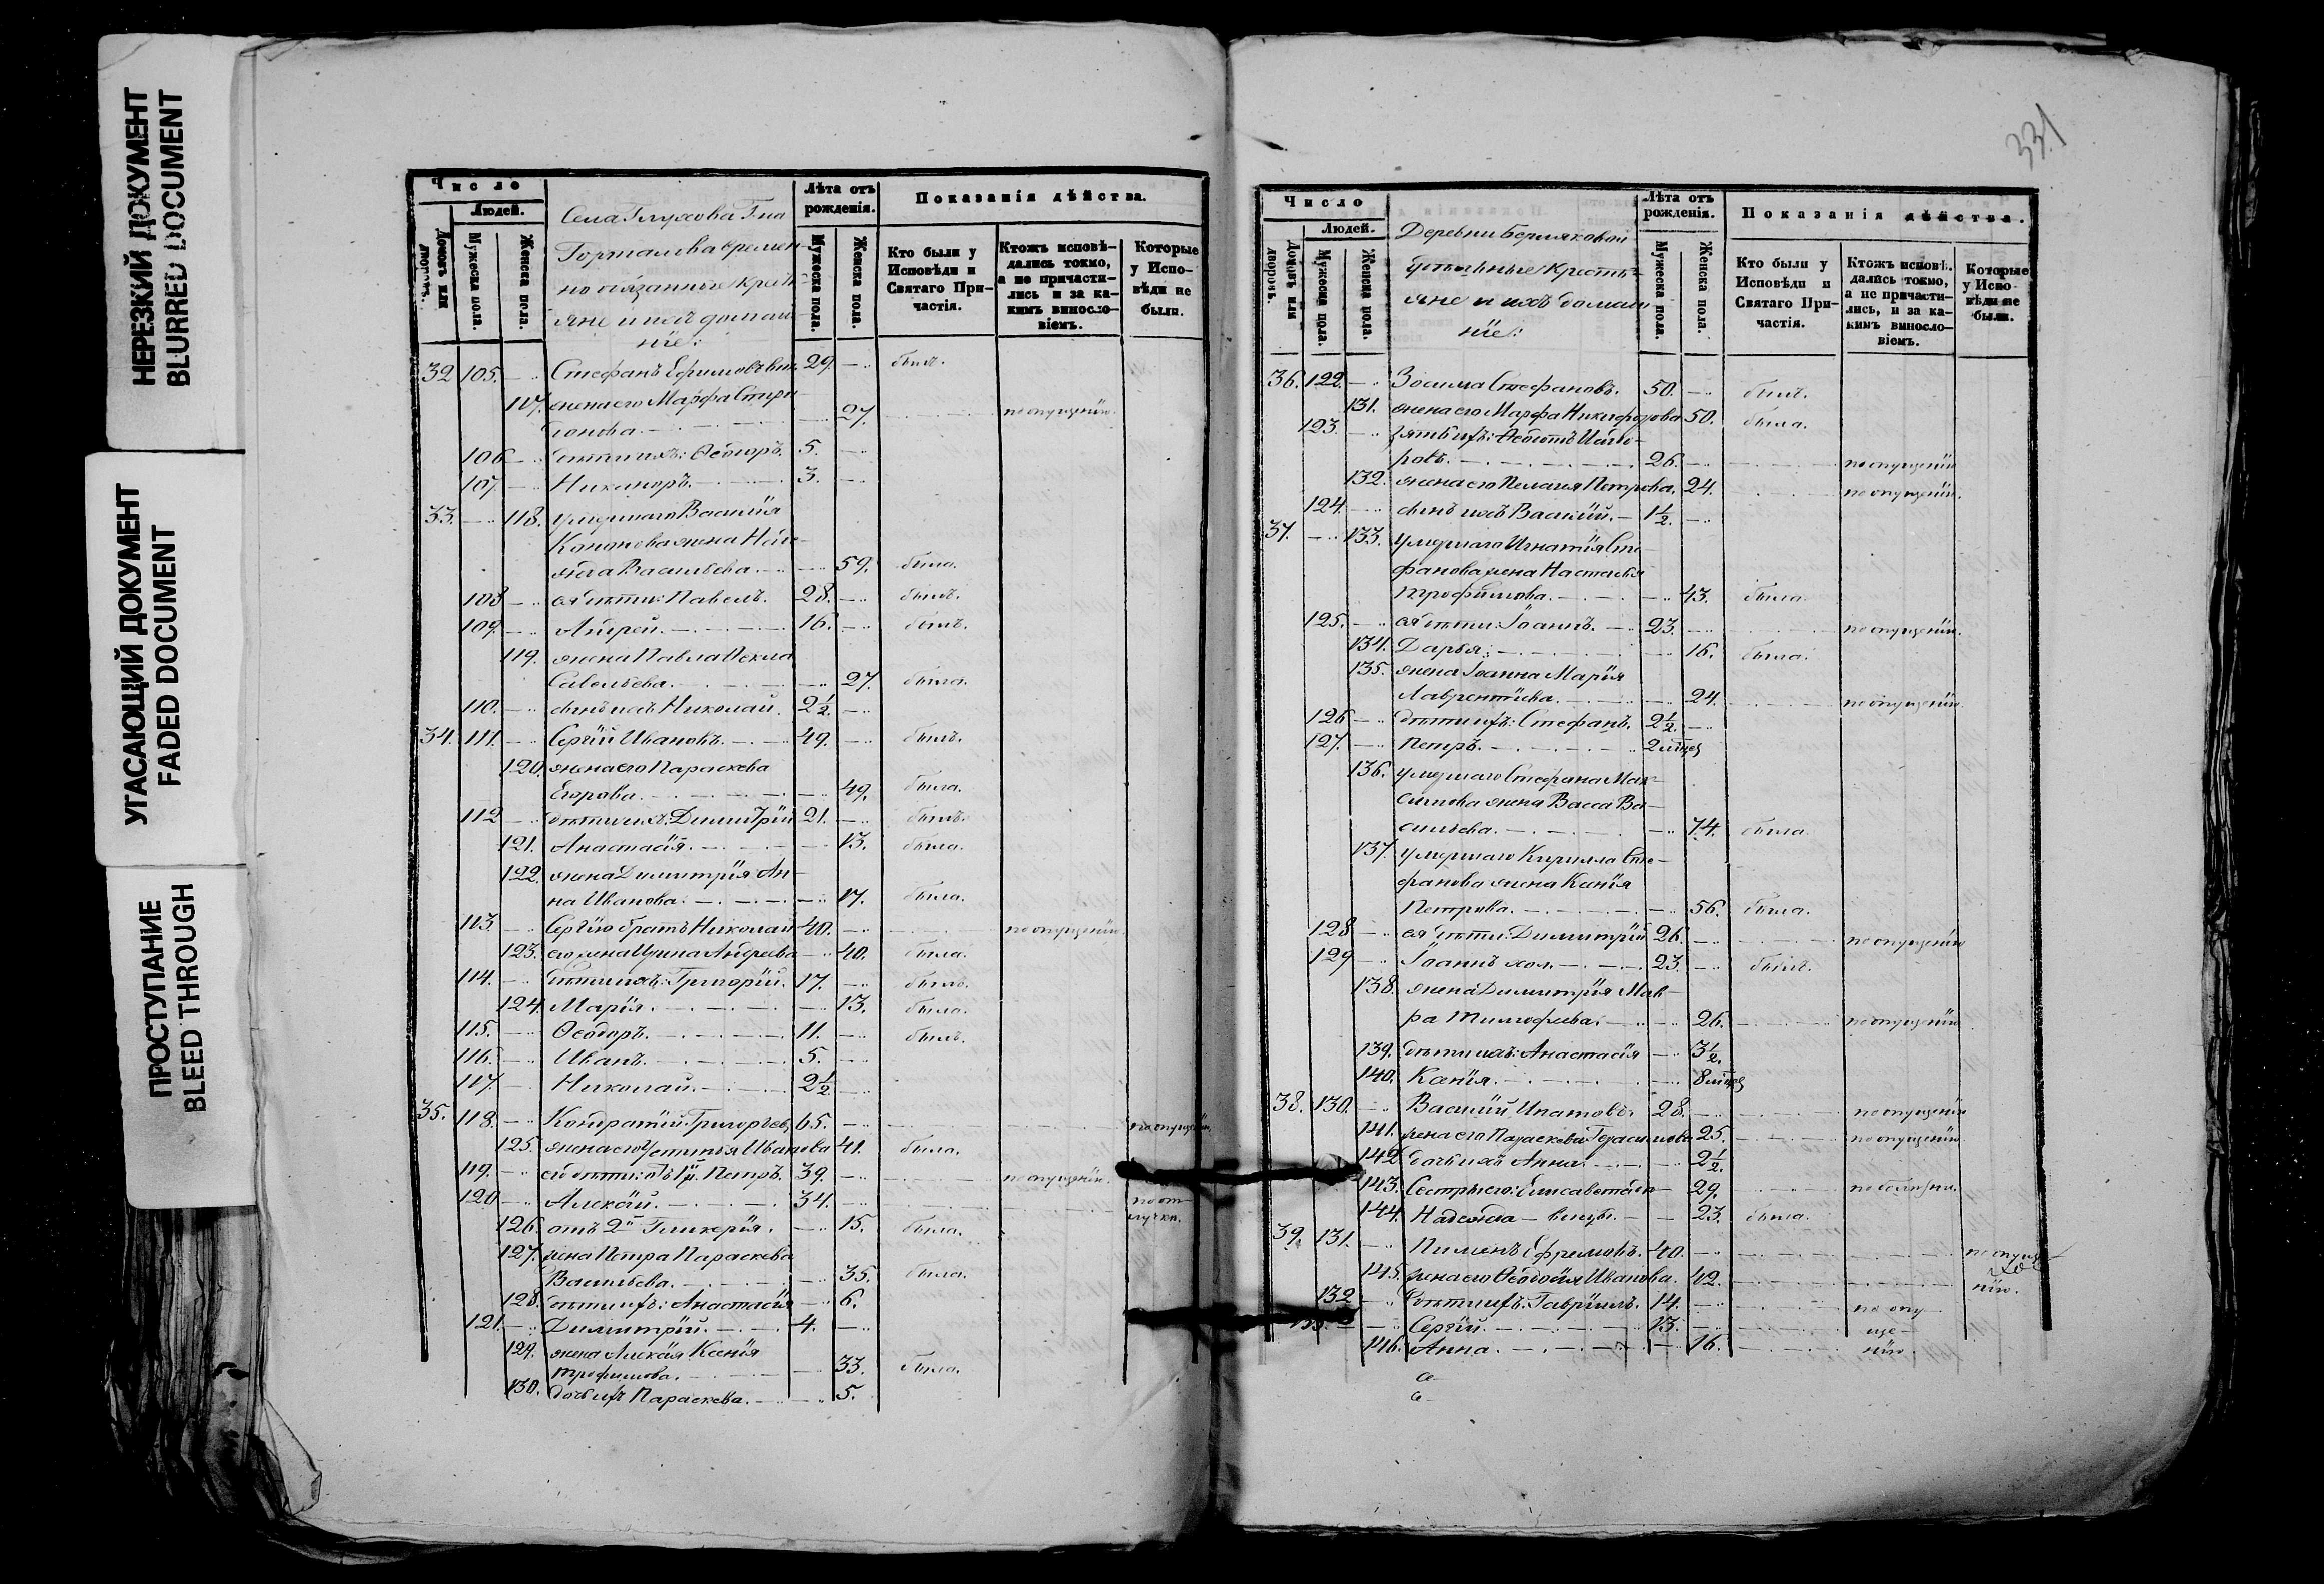 НЕРЕЗКИЙ ДОКУМЕНТ
BLURRED DOCUMENT
УГАСАЮЩИЙ ДОКУМЕНТ
FADED DOCUMENT
ПРОСТУПАНИЕ
BLEED THROUGH
Число
Людей.
Домовъ или дворовъ.
Мужеска пола.
Женска пола.
Села Глухова Гна
временно обязанные крестьяне и ихъ домашніе:
Лѣта отъ рожденія.
Мужеска пола.
Женска пола.
Показанія дѣйства.
Кто были у Исповѣди и Святаго Причастія.
Ктожъ исповѣдались токмо, а не причастились и за какимъ винословіемъ.
Которые у Исповѣди не были.
32 105. Стефанъ Ефимовъ 29. былъ.
117. жена его Марфа
27. по опущенію.
106 дѣти ихъ: Ѳеодоръ. 5.
107 Никаноръ. 3.
33. 118. умершаго Василія
жена
Васильева. 59. была.
108 ея дѣти: Павелъ. 28. былъ.
109. Андрей. 16. былъ.
119. жена Павла Ѳекла
Савельева. 27. была.
110. сынъ ихъ Николай. 2½.
34. 111. Сергій Ивановъ. 49. былъ.
120. жена его Параскева
Егорова. 49. была.
112 дѣти ихъ: Димитрій 21. былъ.
121. Анастасія. 13. была.
122. жена Димитрія Ан-
на Иванова. 17. была.
113. Сергію братъ Николай 40. по опущенію.
123. его жена Ирина Андреева 40. была.
114. дѣти ихъ: Григорій. 17. былъ.
124. Марія. 13. была.
115. Ѳеодоръ. 11. былъ.
116. Иванъ. 5.
117. Николай. 2½
35. 118. Кондратій Григорьевъ 65. по опущенію.
125. жена его Устинья Иванова 41. была.
119. его дѣти: отъ 1й Петръ. 39. по опущенію.
120 Алексій. 34. по от-
лучки.
126. отъ 2й Гликерія. 15. была.
127. жена Петра Параскева
Васильева. 35. была.
128. дѣти ихъ: Анастасія 6.
121. Димитрій. 4.
129. жена Алексія Ксенія
Трофимова. 33. была.
130. дочь ихъ Параскева. 5.
331
Число
Людей.
Домовъ или дворовъ.
Мужеска пола.
Женска пола.
Деревни Берняковой
удѣльные кресть-
яне и ихъ домаш
ніе:
Лѣта отъ рожденія.
Мужеска пола.
Женска пола.
Показанія дѣйства.
Кто были у Исповѣди и Святаго Причастія.
Ктожъ исповѣдались токмо, а не причастились, и за какимъ винословіемъ.
Которые у Исповѣди не были.
36. 122. Зосима Стефановъ. 50. былъ.
131. жена его Марфа Никифорова 50. была.
123. зять ихъ: Ѳеоѳентъ
ровъ. 26. по опущенію
132. жена его Пелагія Петрова. 24. по опущенію.
124. сынъ ихъ Василій. 1½.
37. 133. умершаго Игнатія Сте-
фанова жена Настасья
Трофимова. 43. была.
125. ея дѣти: Іоаннъ. 23. по опущенію.
134. Дарья. 16. была.
135. жена Іоанна Марія
Лаврентіева. 24. по опущенію.
126 дѣти ихъ: Стефанъ. 2½.
127. Петръ. 2 мѣсяц
136. умершаго Стефана Мак-
симова жена Васса Ва-
сильева. 74. была.
137. умершаго Кирилла Сте-
фанова жена Ксенія
Петрова. 56. была.
128 ея дѣти: Димитрій 26. по опущенію
129 Іоаннъ хол. 23. былъ.
138. жена Димитрія Мав-
ра Тимофеева. 26. по опущенію
139. дѣти ихъ: Анастасія 3½.
140. Ксенія. 8 мѣсяц
38. 130. Василій Ипатовъ. 28. по опущенію
141. жена его Параскева Герасимова 25. по опущенію.
142 дочь ихъ Анна. 2½.
143. Сестры его: Елисавета 29. по болѣзни.
144. Надежда 23. была.
39. 131. Пименъ Ефремовъ. 40. по опуще-
145. жена его Ѳеодосія Иванова. 42. нію.
132 дѣти ихъ: Гавріилъ. 14. по опу-
Сергій. 13. ще-
146. Анна. 16. нію.